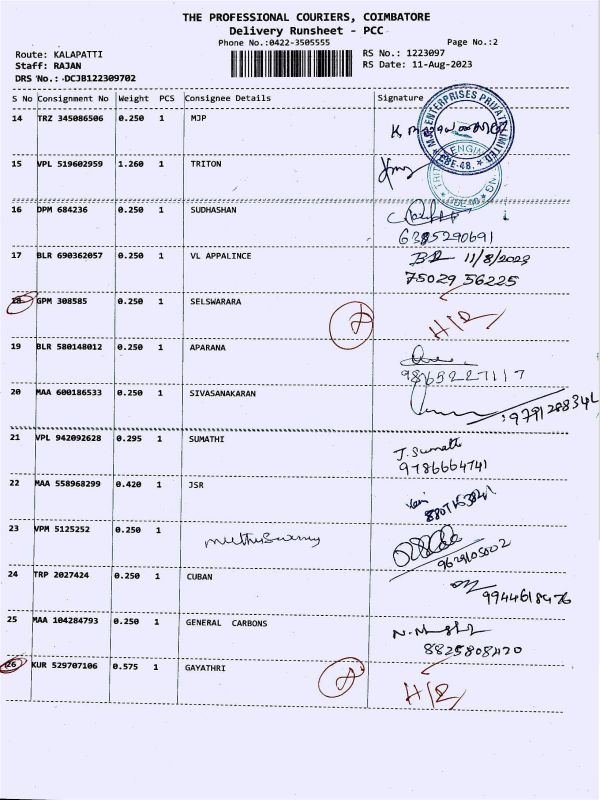 THE PROFESSIONAL COURIERS, COIMBATORE
Delivery Runsheet - PCC
Phone No.:0422-3505555 Page No.:2
Route: KALAPATTI RS No.: 1223097
Staff: RAJAN RS Date: 11-Aug-2023
DRS No.: DCJB122309702
S No Consignment No Weight PCS Consignee Details Signature
14 TRZ 345086506 0.250 1 MJP
ENTERPRISES PRIVATE LIMITED
CBE-48.
15 VPL 519602959 1.260 1 TRITON
16 DPM 684236 0.250 1 SUDHASHAN
6385290691
17 BLR 690362057 0.250 1 VL APPALINCE 11/8/2023
75029 56225
18 GPM 308585 0.250 1 SELSWARARA
H/R
19 BLR 580148012 0.250 1 APARANA
9865227117
20 MAA 600186533 0.250 1 SIVASANAKARAN
21 VPL 942092628 0.295 1 SUMATHI J. Sumathi
9786664741
22 MAA 558968299 0.420 1 JSR
23 VPM 5125252 0.250 1 muthuswamy
9629105002
24 TRP 2027424 0.250 1 CUBAN
9944618476
25 MAA 104284793 0.250 1 GENERAL CARBONS
8825808420
26 KUR 529707106 0.575 1 GAYATHRI
H/R